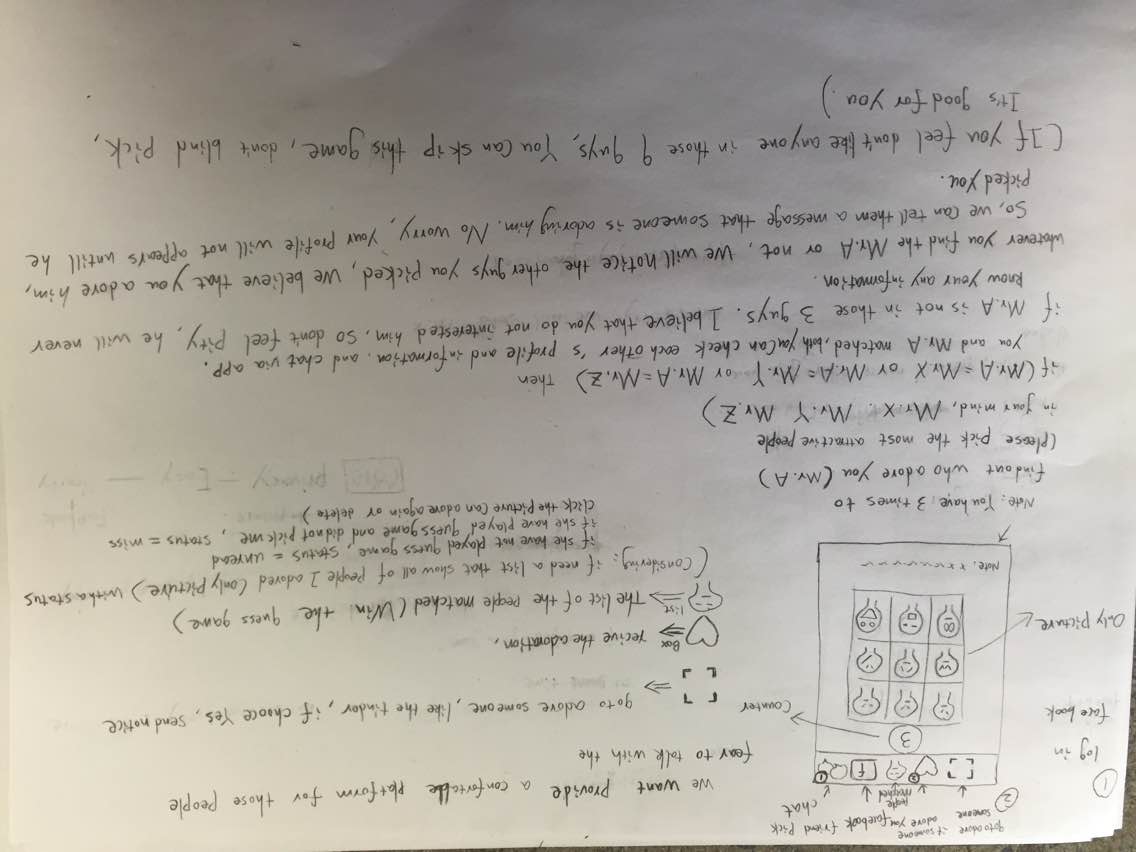 ①
log in
facebook
②
go to adore someone
if someone adore you
people matched
facebook friend pick
chat
f
3
Counter
Only picture
Note:
We want provide a confortable platform for those people
fear to talk with the
⇒ go to adore someone, like the tinder, if chooce Yes, send notice
Box
⇒ recive the adoration,
list
⇒ The list of the people matched (Win the guess game)
(Considering: if need a list that show all of people I adored (only picture) with a status
if she have not played guess game, status = unread
if she have played guess game and did not pick me, status = miss
click the picture can adore again or delete)
privacy
Note: You have 3 times to
find out who adore you (Mr.A)
(please pick the most attractive people
in your mind, Mr.X, Mr.Y Mr.Z)
if (Mr.A = Mr.X or Mr.A = Mr.Y or Mr.A = Mr.Z) Then
you and Mr.A matched, both you can check each other's profile and information, and chat via app.
if Mr.A is not in those 3 guys. I believe that you do not interested him, so don't feel pity, he will never
know your any information.
whatever you find the Mr.A or not, we will notice the other guys you picked, we believe that you adore him,
So, we can tell them a message that someone is adoring him. No worry, your profile will not appears untill he
picked you.
(If you feel don't like anyone in those 9 guys, You can skip this game, don't blind pick,
It's good for you.)